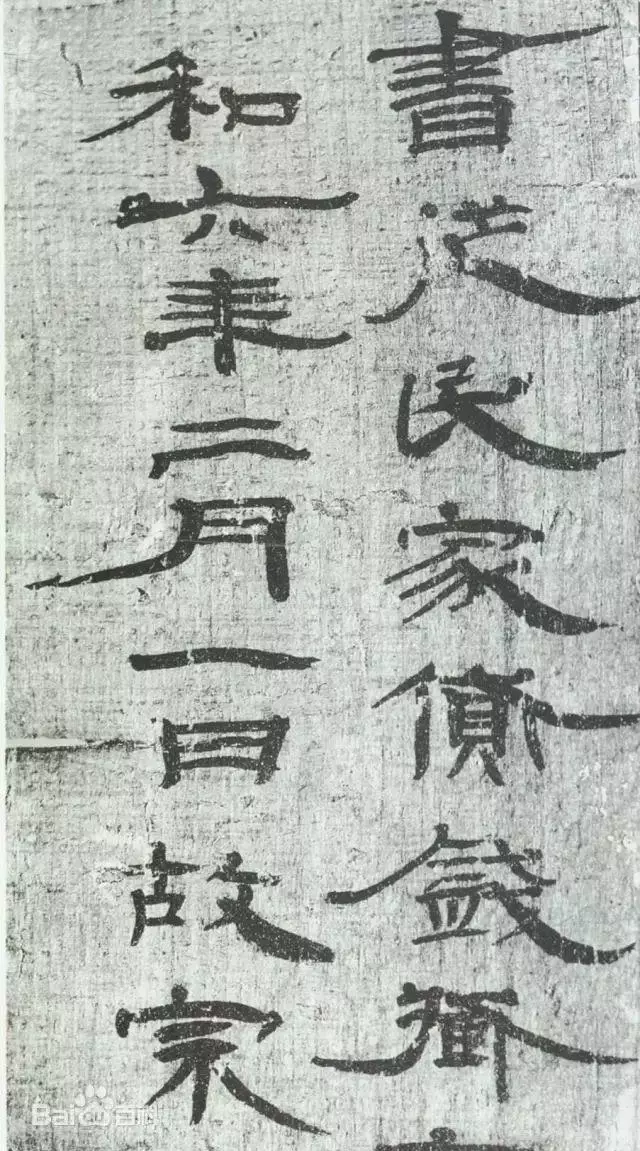 書從民家貸
和六年二月一日故宗
Bai百科